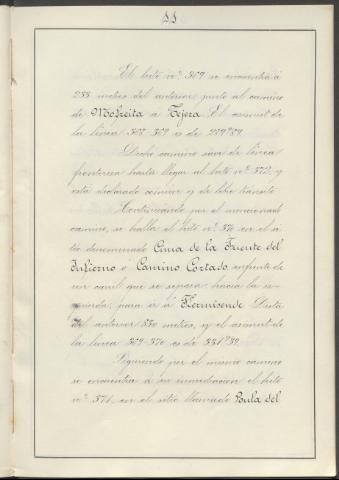 55
El hito nº 369 se encuentra á
288 metros del anterior junto al camino
de Mofreita á Tejera. El azimut de
la línea 368-369 es de
Dicho camino sirve de línea
fronteriza hasta llegar al hito nº 372, y
está declarado común y de libre tránsito
Continuando por el mencionado
camino, se halla el hito nº 370 en el si
tio denominado Cima de la Fuente del
Infierno ó Camino Cortado enfrente de
un carril que se separa hacia la iz-
quierda, para ir á Hermisende. Dista
del anterior 350 metros, y el azimut de
la línea 369-370 es de 331º39'.
Siguiendo por el mismo camino
se encuentra á su inmediación el hito
nº 371, en el sitio llamado Poula del